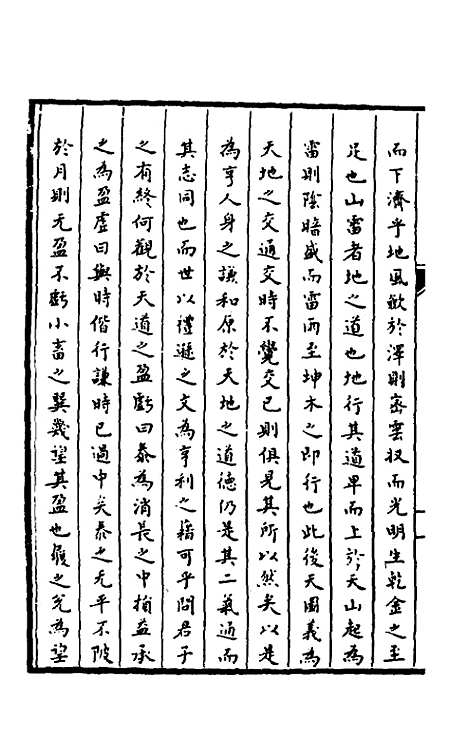 而下濟乎地風歛於澤則密雲收而光明生乾金之至
足也山雷者地之道也地行其道卑而上於天山起為
雷則陰暗盛而雷雨至坤木之即行也此後天圖義為
天地之交通交時不覺交已則俱見其所以然矣以是
為亨人身之謙和原於天地之道德仍是其二氣通而
其志同也而世以禮遜之文為亨利之藉可乎問君子
之有終何觀於天道之盈虧曰泰為消長之中損益承
之為盈虛曰與時偕行謙時已過中矣泰之无平不陂
於月則无盈不虧小畜之巽幾望其盈也履之兌為望